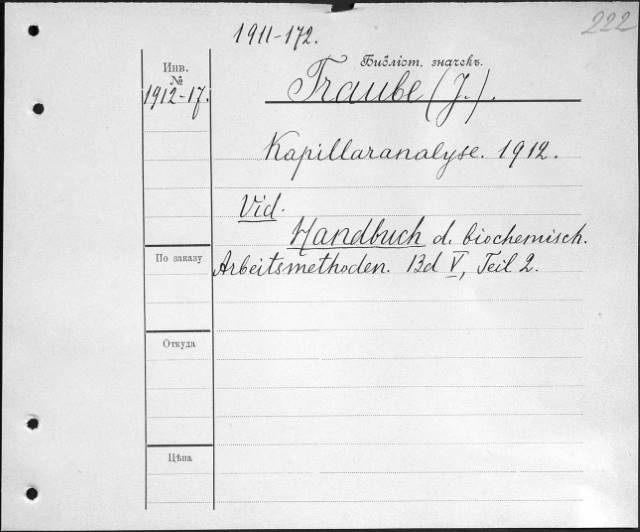 222
1911-172.
Библіот. значекъ.
Инв.
№
1912-17.
Traube (J.).
Kapillaranalyse. 1912.
Vid.
Handbuch d. biochemisch.
Arbeitsmethoden. Bd V, Teil 2.
По заказу
Откуда
Цѣна